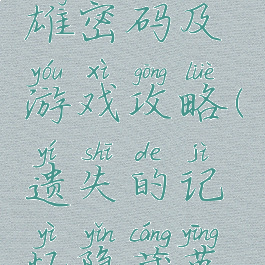 雄密码及
yóu xì gōng lüè
游戏攻略(
yí shī de jì
遗失的记
yì yǐn cáng yīng
忆隐藏英